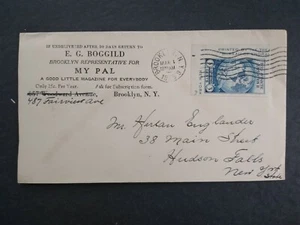 IF UNDELIVERED AFTER 10 DAYS RETURN TO
E. G. BOGGILD
BROOKLYN REPRESENTATIVE FOR
MY PAL
A GOOD LITTLE MAGAZINE FOR EVERYBODY
Only 25c Per Year. Ask for Subscription form.
457 Woodward Avenue, Brooklyn, N. Y.
487 Fairview Ave
BROOKLYN, N.Y.
Mr. Herban Englander
38 Main Street
Hudson Falls
New York
State